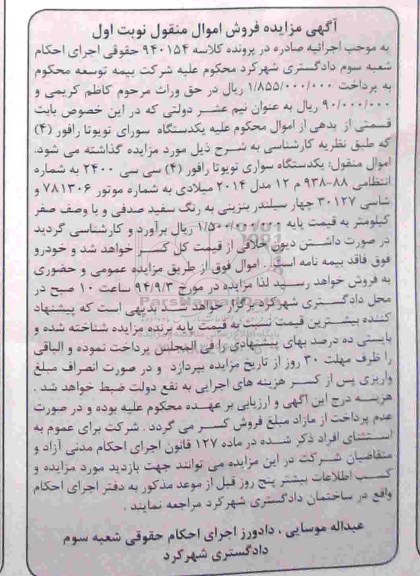 آگهی مزایده فروش اموال منقول نوبت اول
به موجب اجرائیه صادره در پرونده کلاسه ۹۴۰۱۵۴ حقوقی اجرای احکام
شعبه سوم دادگستری شهرکرد محکوم علیه شرکت بیمه توسعه محکوم
به پرداخت ۱/۸۵۵/۰۰۰/۰۰۰ ریال در حق وراث مرحوم کاظم کریمی و
۹۰/۰۰۰/۰۰۰ ریال به عنوان نیم عشر دولتی که در این خصوص بابت
قسمتی از بدهی از اموال محکوم علیه یکدستگاه سورای تویوتا رافور (۴)
که طبق نظریه کارشناسی به شرح ذیل مورد مزایده گذاشته می شود.
اموال منقول: یکدستگاه سواری تویوتا رافور (۴) سی سی ۲۴۰۰ به شماره
انتظامی ۸۸-۹۳۸ م ۱۲ مدل ۲۰۱۴ میلادی به شماره موتور ۷۸۱۳۰۶ و
شاسی ۳۰۱۲۷ چهار سیلندر بنزینی به رنگ سفید صدفی و با وصف صفر
کیلومتر به قیمت پایه ۱/۵۰۰/۰۰۰/۰۰۰ ریال برآورد و کارشناسی گردید
در صورت داشتن دیون خلافی از قیمت کل کسر خواهد شد و خودرو
فوق فاقد بیمه نامه است. اموال فوق از طریق مزایده عمومی و حضوری
به فروش خواهد رسید لذا مزایده در مورخ ۹۴/۹/۳ ساعت ۱۰ صبح در
محل دادگستری شهرکرد برگزار خواهد شد. بدیهی است که پیشنهاد
کننده بیشترین قیمت نسبت به قیمت پایه برنده مزایده شناخته شده و
بایستی ده درصد بهای پیشنهادی را فی المجلس پرداخت نموده و الباقی
را ظرف مهلت ۳۰ روز از تاریخ مزایده بپردازد و در صورت انصراف مبلغ
واریزی پس از کسر هزینه های اجرایی به نفع دولت ضبط خواهد شد.
هزینه درج این آگهی و ارزیابی بر عهده محکوم علیه بوده و در صورت
عدم پرداخت از مازاد مبلغ فروش کسر می گردد. شرکت برای عموم به
استثنای افراد ذکر شده در ماده ۱۲۷ قانون اجرای احکام مدنی آزاد و
متقاضیان شرکت در این مزایده می توانند جهت بازدید مورد مزایده و
کسب اطلاعات بیشتر پنج روز قبل از موعد مذکور به دفتر اجرای احکام
واقع در ساختمان دادگستری شهرکرد مراجعه نمایند.
عبداله موسایی، دادورز اجرای احکام حقوقی شعبه سوم
دادگستری شهرکرد